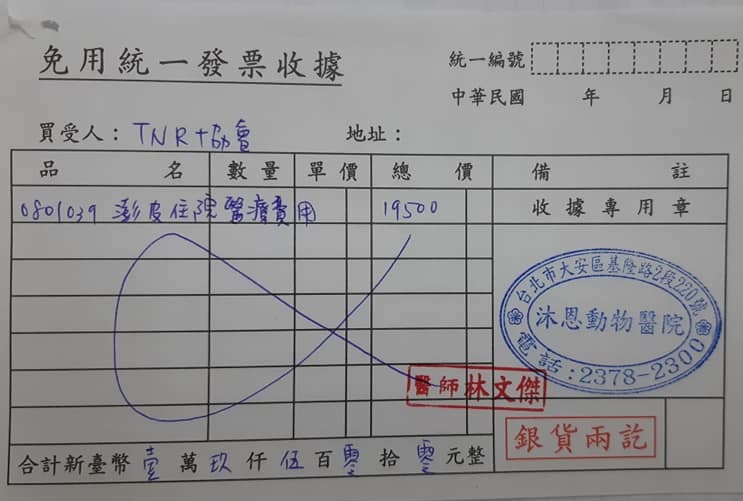 免用統一發票收據
統一編號
中華民國 年 月 日
買受人：TNR+協會 地址：
品名 數量 單價 總價 備註
0801039 澎皮住院醫療費用 19500 收據專用章
台北市大安區基隆路2段220號
沐恩動物醫院
電話:2378-2300
醫師林文傑
銀貨兩訖
合計新臺幣壹萬玖仟伍百零拾零元整